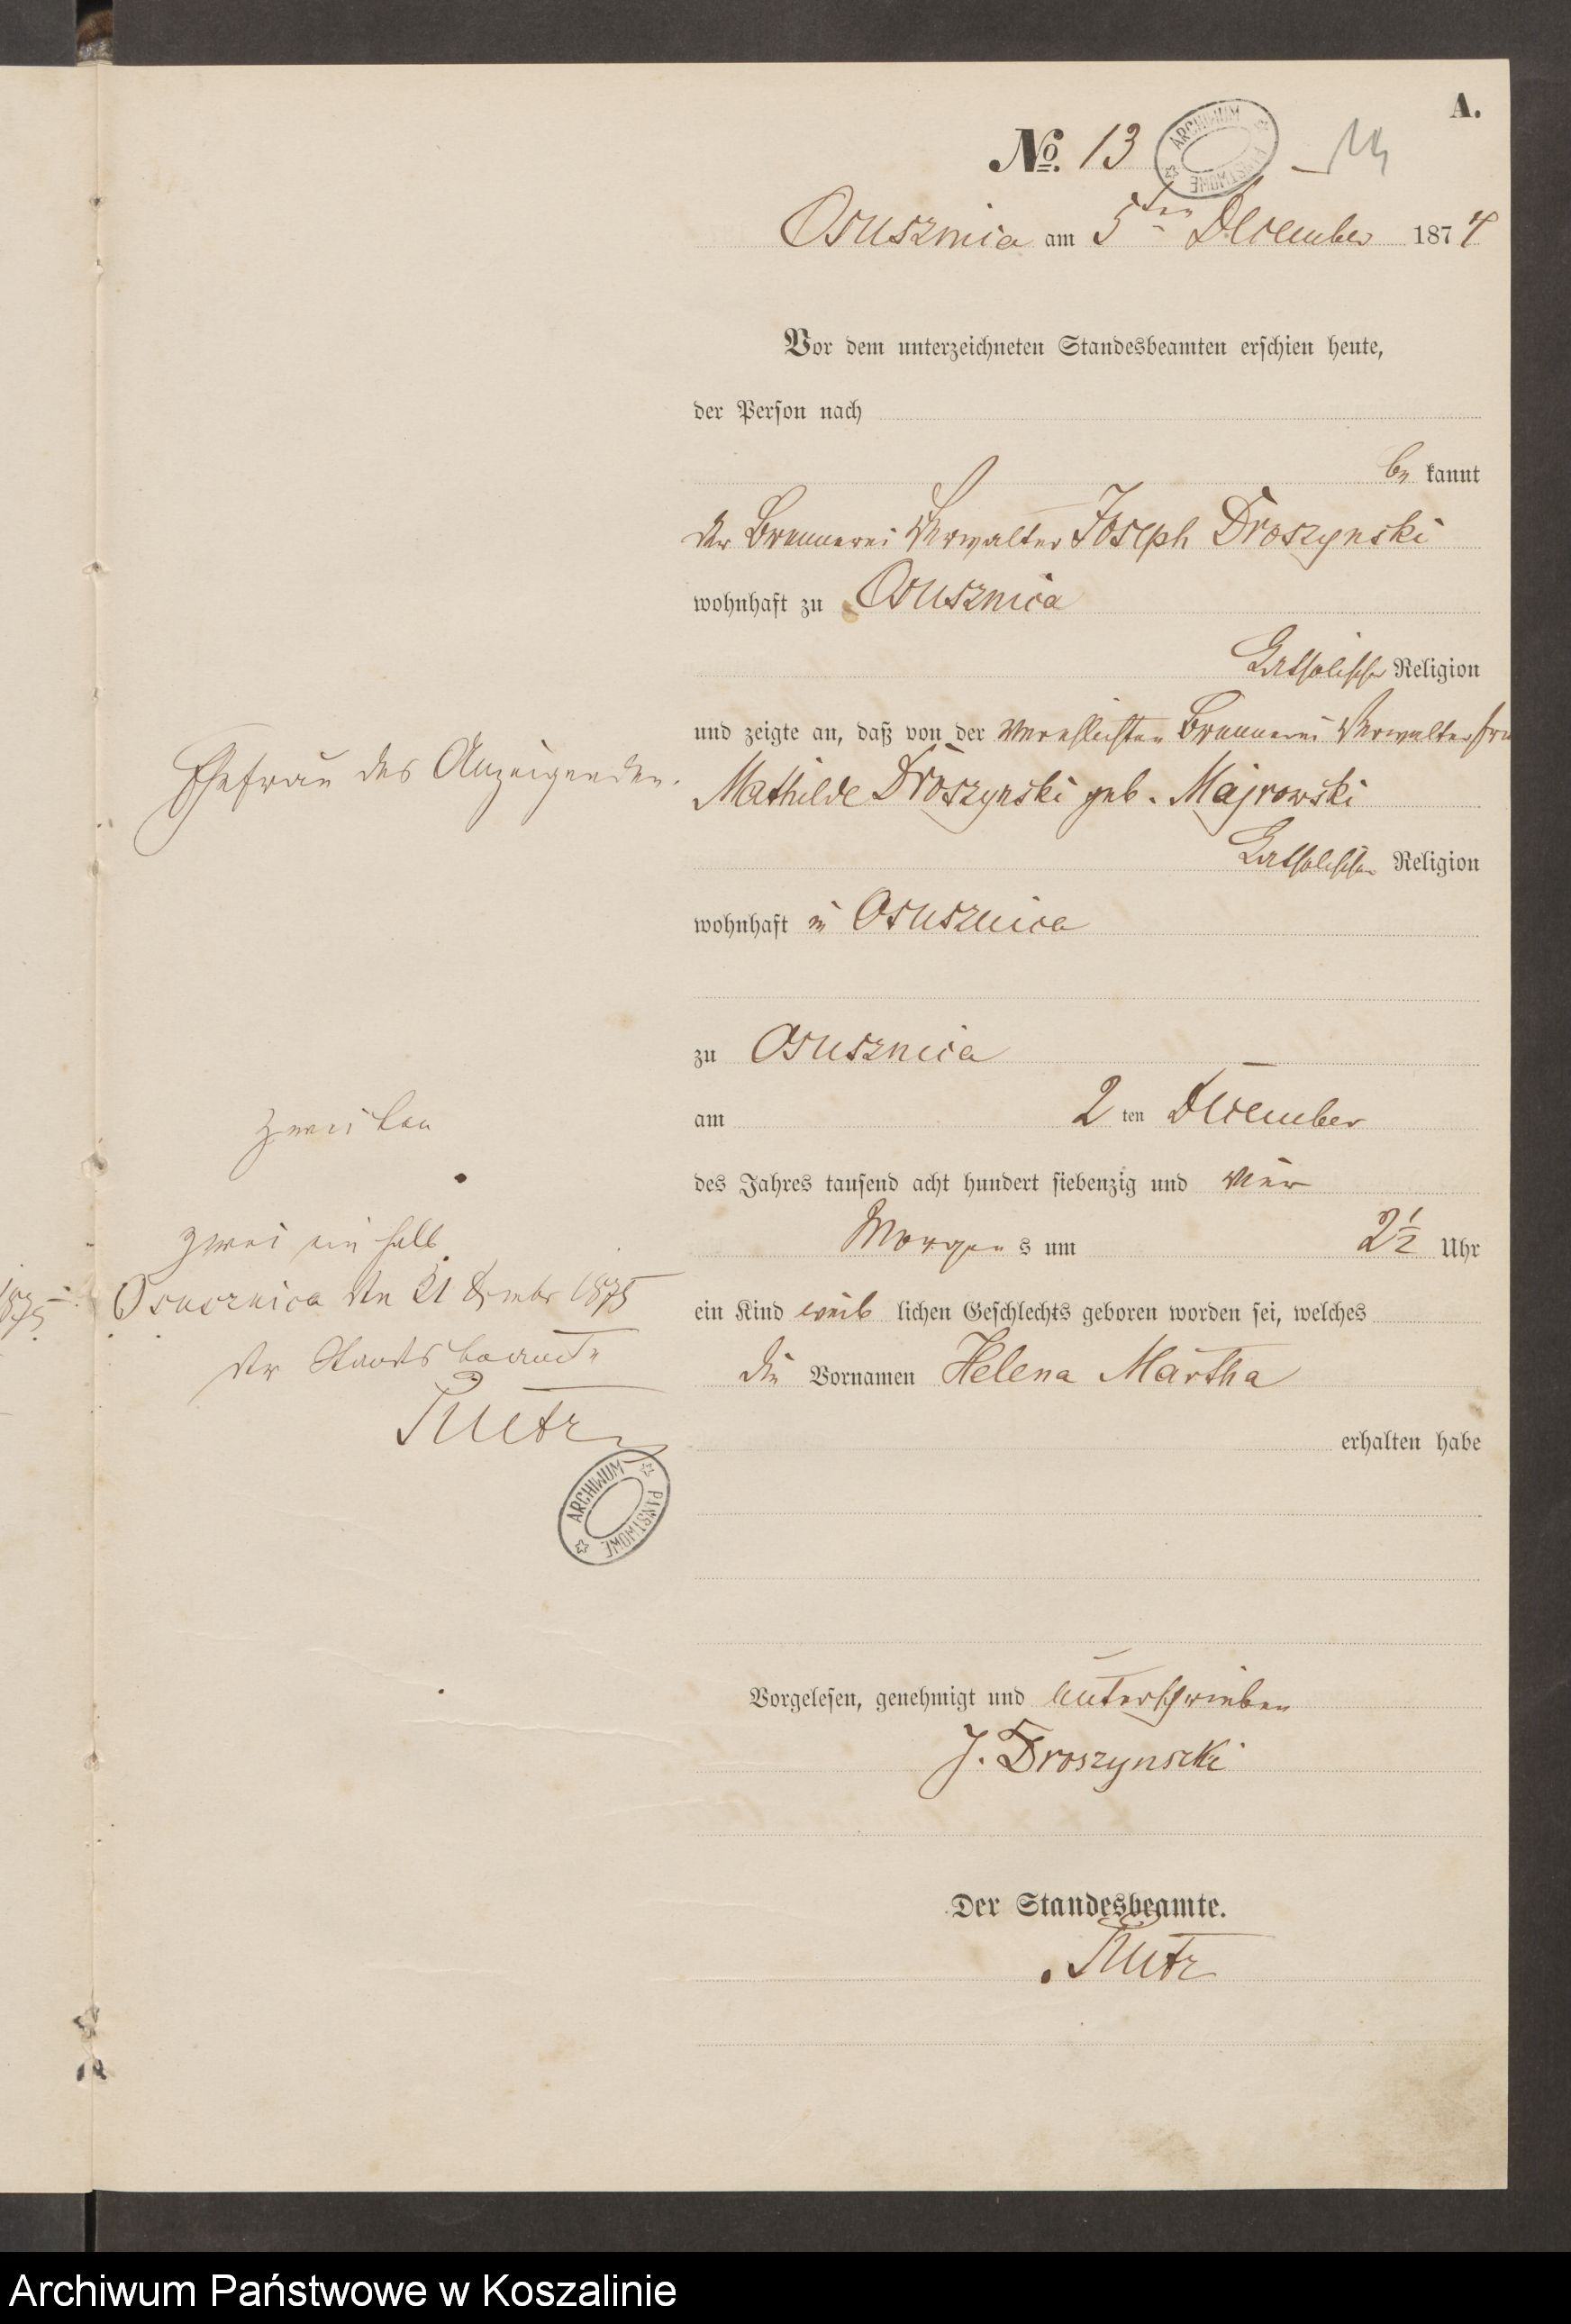 A.
No. 13
ARCHIWUM PAŃSTWOWE
Osusznica am 5ten December 1874
Vor dem unterzeichneten Standesbeamten erschien heute,
der Person nach
be kannt
der Brennerei Verwalter Joseph Droszynski
wohnhaft zu Osusznica
katholischer Religion
und zeigte an, daß von der verehlichten Brennerei Verwalter Frau
Ehefrau des Anzeigenden.
Mathilde Droszynski geb. Majrowski
katholischer Religion
wohnhaft in Osusznica
zu Osusznica
zweiten
am 2 ten December
des Jahres tausend acht hundert siebenzig und vier
zwei ein halb
Morgen s um 2½ Uhr
1875
Osusznica den 21 Dezmbr 1875
ein Kind weib lichen Geschlechts geboren worden sei, welches
der Standesbeamte
die Vornamen Helena Martha
erhalten habe
ARCHIWUM PAŃSTWOWE
Vorgelesen, genehmigt und unterschrieben
J. Droszynski
Der Standesbeamte.
Archiwum Państwowe w Koszalinie